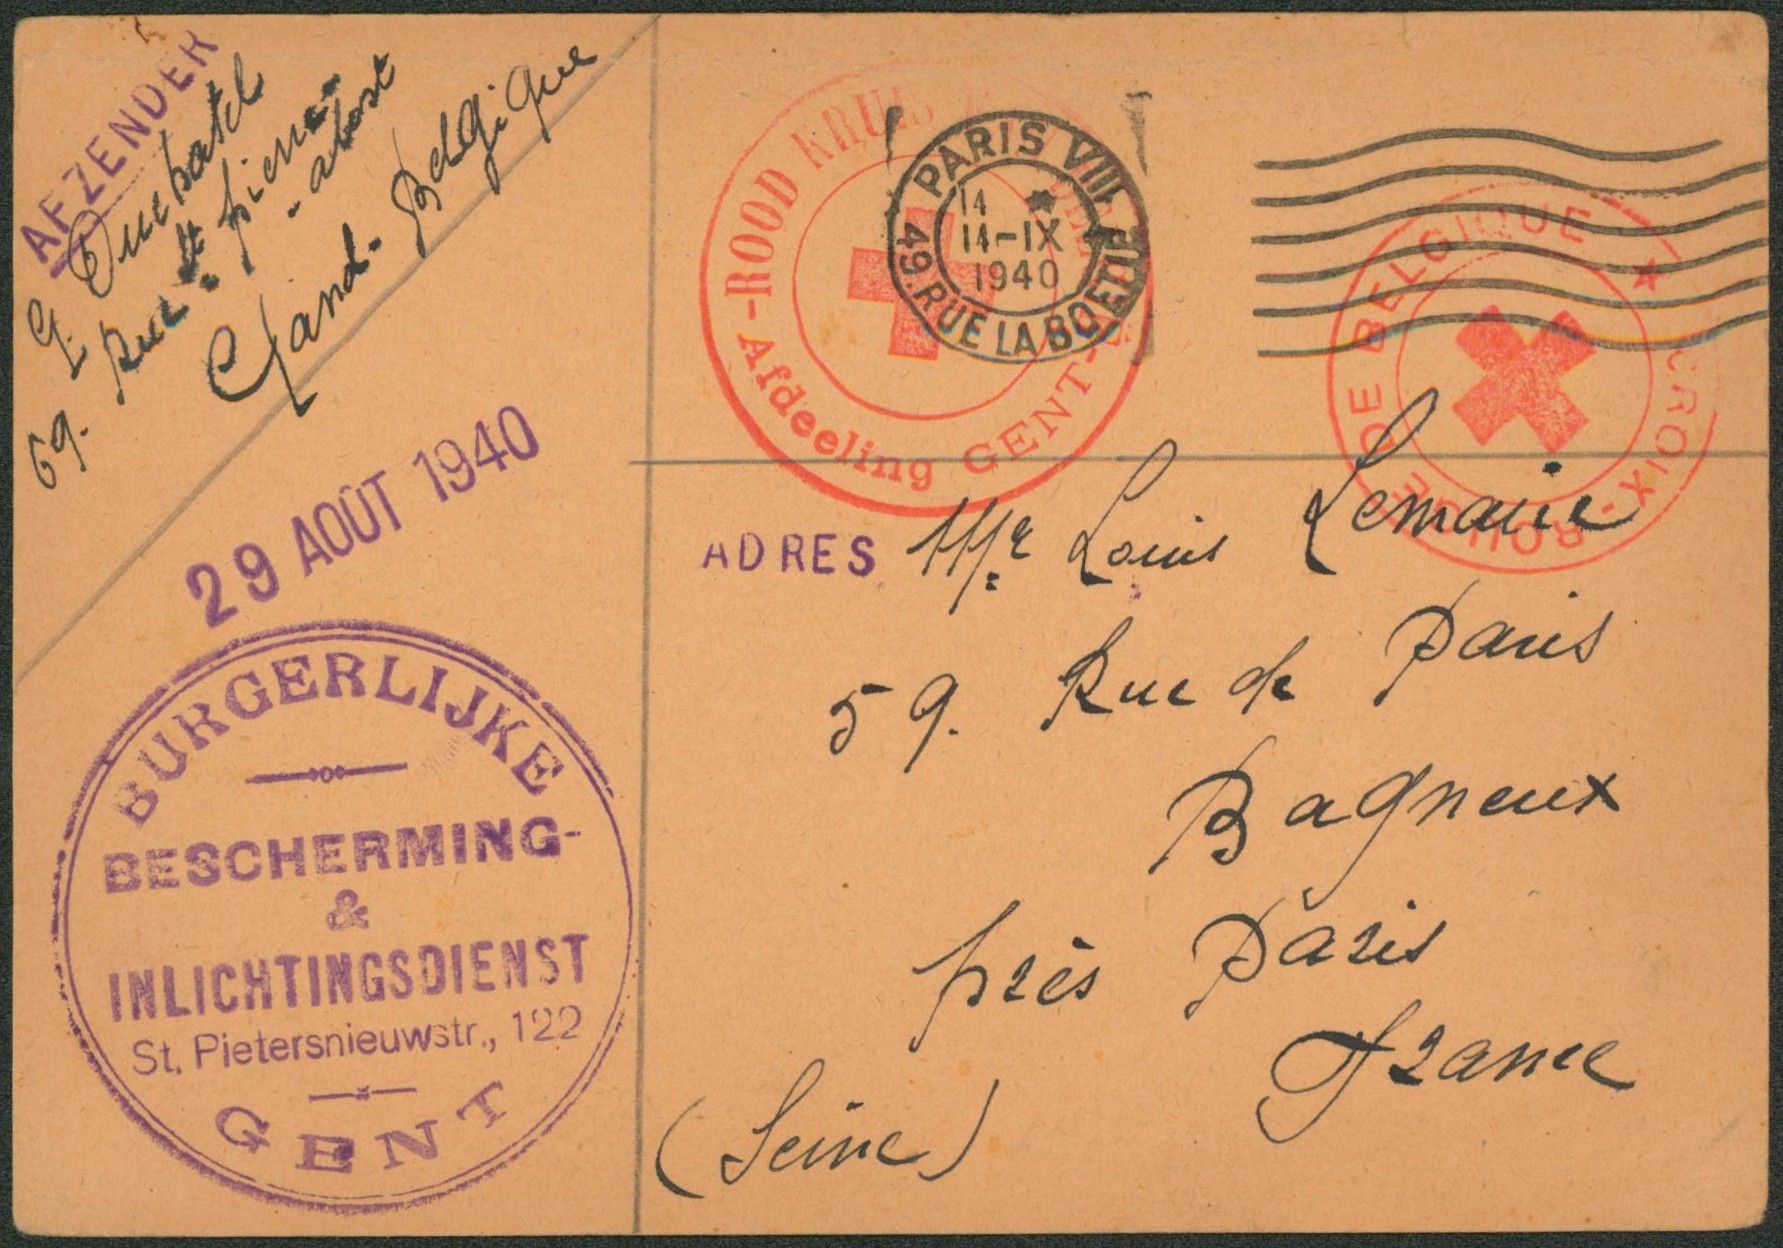 AFZENDER
G. Duchatel
69. Rue St pierre
- alost
Gand - Belgique
29 AOÛT 1940
BURGERLIJKE
BESCHERMING-
&
INLICHTINGSDIENST
St. Pietersnieuwstr., 122
GENT
-ROOD KRUIS
Afdeeling GENT-
PARIS VIII
14
14-IX
1940
49. RUE LA BOETIE
CROIX-ROUGE DE BELGIQUE
ADRES Mr Louis Lemaire
59. Rue de Paris
Bagneux
près Paris
France
(Seine)